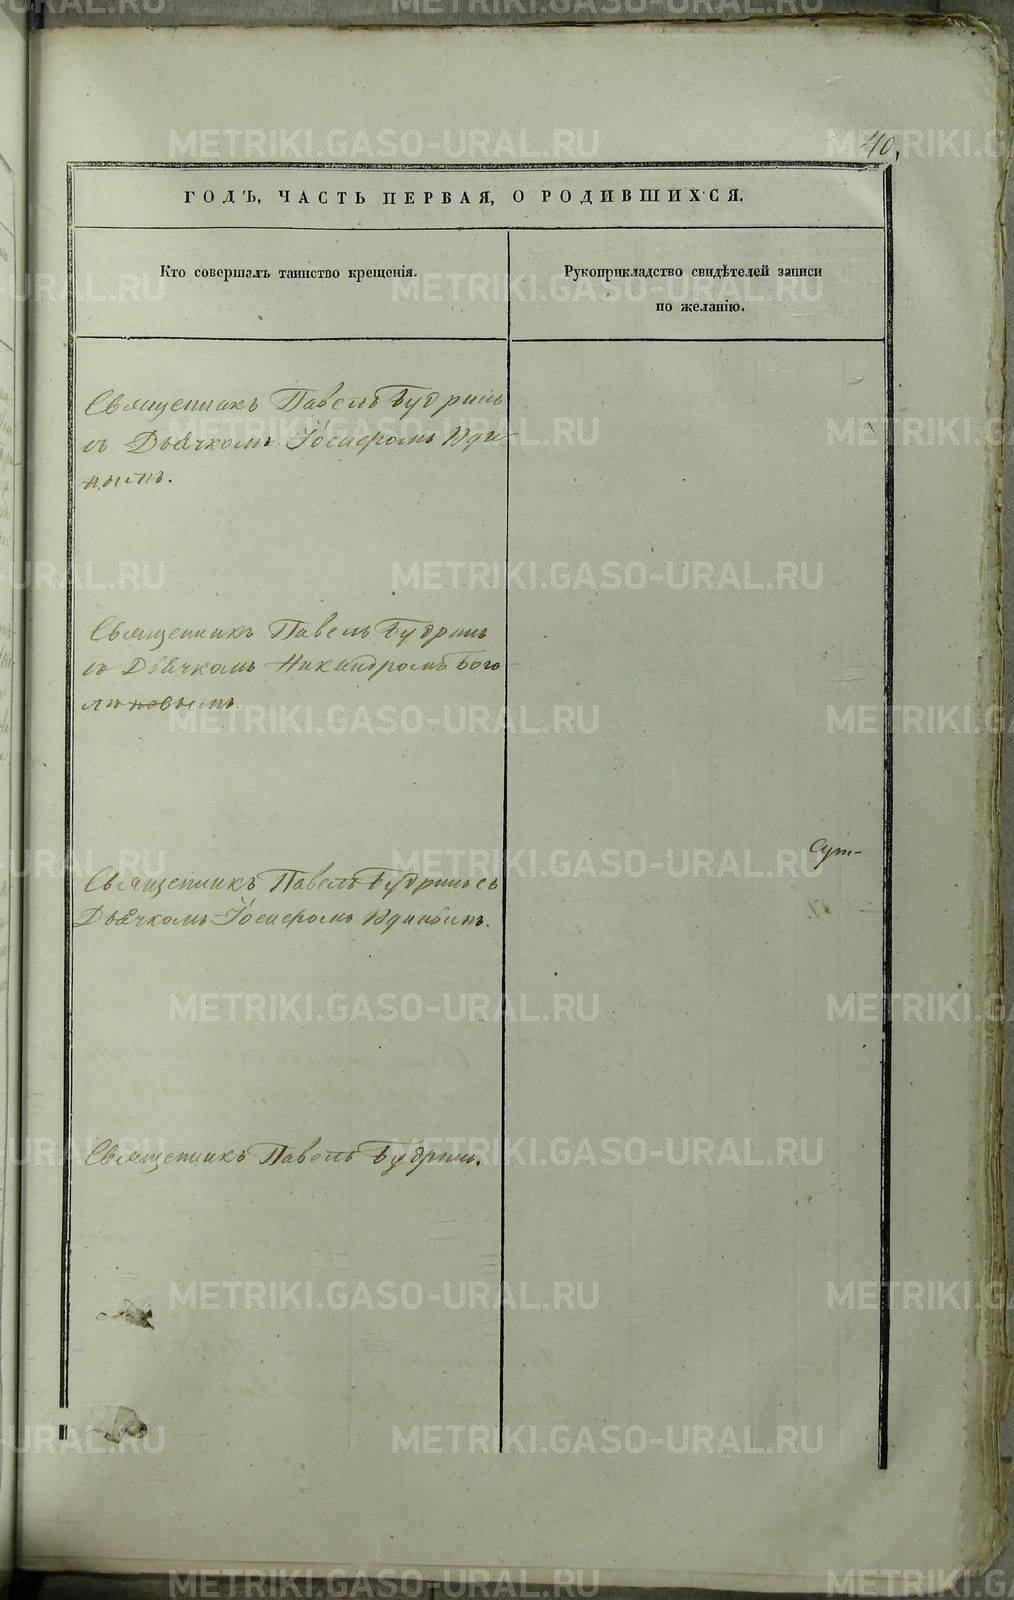 40,
ГОДЪ, ЧАСТЬ ПЕРВАЯ, О РОДИВШИХСЯ.
Кто совершалъ таинство крещенія.
Рукоприкладство свидѣтелей записи
по желанію.
Священникъ Павелъ Будринъ
съ Дьячкомъ Іосифомъ Юди-
нымъ.
Священникъ Павелъ Будринъ
съ Дьячкомъ Никандромъ Бого
Священникъ Павелъ Будринъ съ
Дьячкомъ Іосифомъ Юдинымъ.
Священникъ Павелъ Будрин.
METRIKI.GASO-URAL.RU